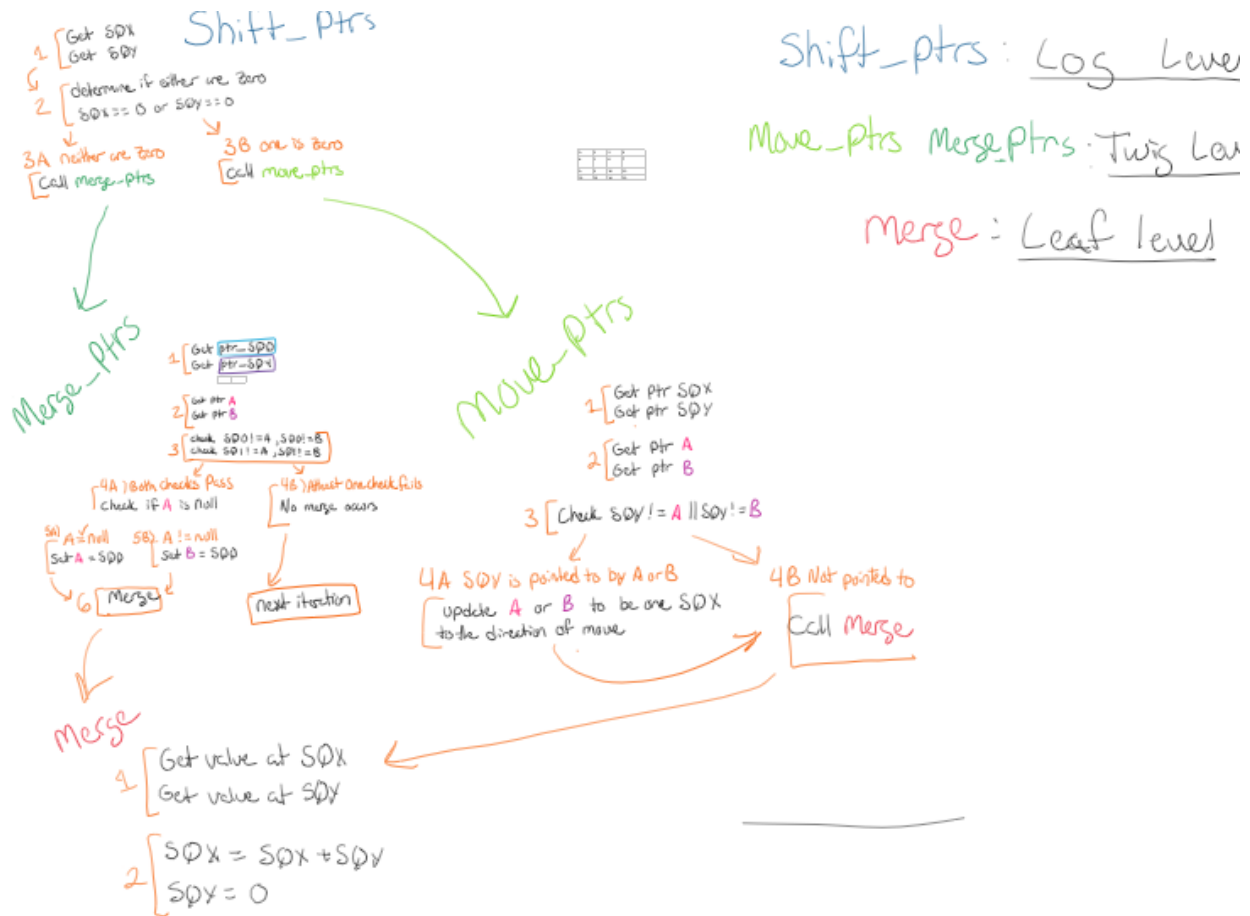 Shift_Ptrs
1 Get SQX
Get SQY
2 determine if either are zero
SQX == 0 or SQY == 0
3A neither are zero
Call merge_ptrs
3B one is zero
Call move_ptrs
Shift_ptrs: Log Level
Move_ptrs Merge_ptrs: Twig Lev
Merge: Leaf level
Merge_Ptrs
1 Get ptr_SQ0
Get ptr_SQY
2 Get ptr A
Get ptr B
3 check SQ0 != A, SQ0! = B
check SQ1 != A, SQ1! = B
4A) Both checks Pass
check if A is null
4B) Atleast one check fails
No merge occurs
5A) A = null
Set A = SQ0
5B) A != null
Set B = SQ0
6 Merge
next iteration
Move_Ptrs
1 Get ptr SQX
Get ptr SQY
2 Get ptr A
Get ptr B
3 Check SQY! = A || SQY! = B
4A SQY is pointed to by A or B
update A or B to be one SQX
to the direction of move
4B Not pointed to
Call Merge
Merge
1 Get value at SQX
Get value at SQY
2 SQX = SQX + SQY
SQY = 0